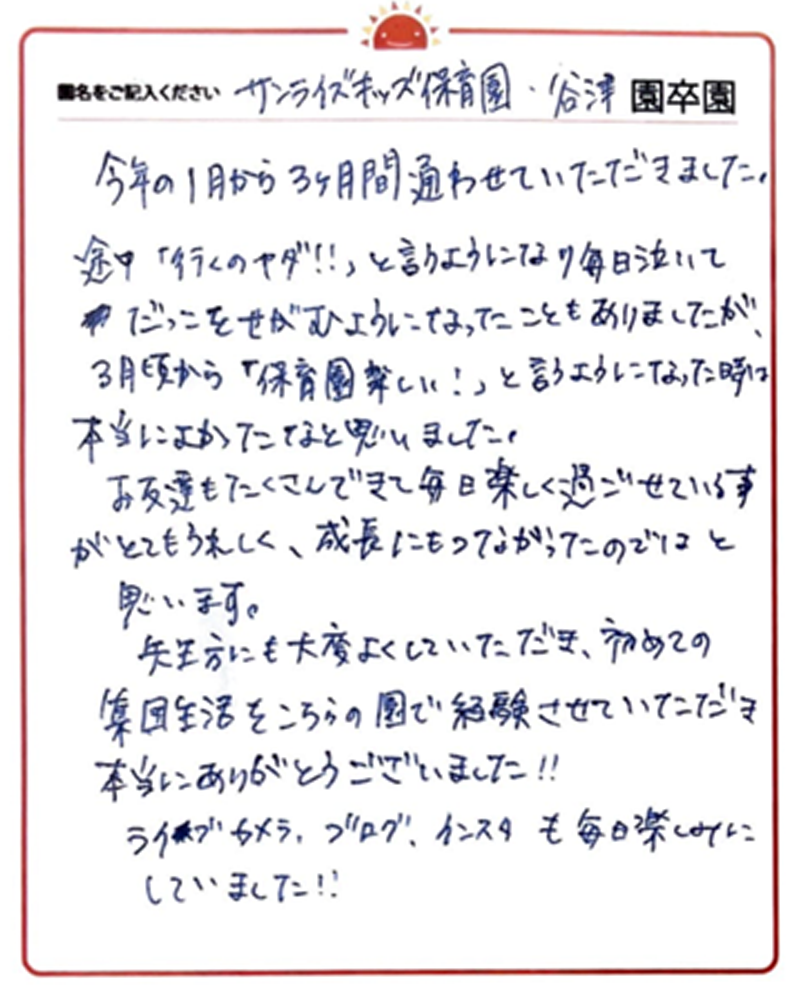 園名をご記入ください サンライズキッズ保育園・谷津 園卒園
今年の1月から3ヶ月間通わせていただきました。
途中「行くのヤダ!!」と言うようになり毎日泣いて
だっこをせがむようになったこともありましたが、
3月頃から「保育園楽しい!」と言うようになった時は
本当によかったなと思いました。
お友達もたくさんできて毎日楽しく過ごせている事
がとてもうれしく、成長にもつながったのではと
思います。
先生方にも大変よくしていただき、初めての
集団生活をこちらの園で経験させていただき
本当にありがとうございました!!
ライブカメラ、ブログ、インスタも毎日楽しみに
していました!!